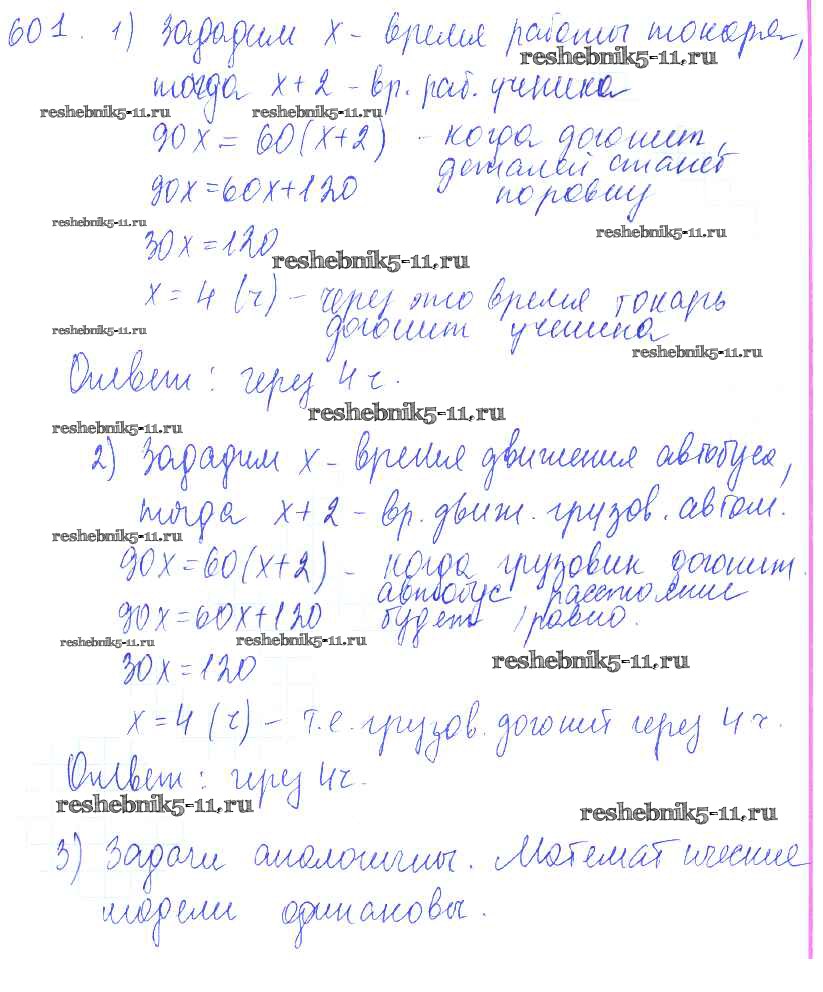 601. 1) Зададим x - время работы токаря,
reshebnik5-11.ru
тогда x+2 - вр. раб. ученика
reshebnik5-11.ru reshebnik5-11.ru
90x = 60(x+2) - когда догонит,
деталей станет
90x=60x+120 поровну
reshebnik5-11.ru reshebnik5-11.ru
30x=120
reshebnik5-11.ru
x=4 (ч) - через это время токарь
reshebnik5-11.ru догонит ученика
reshebnik5-11.ru
Ответ: через 4 ч.
reshebnik5-11.ru
reshebnik5-11.ru
2) Зададим x - время движения автобуса,
тогда x+2 - вр. движ. грузов. автом.
reshebnik5-11.ru
90x=60(x+2) - когда грузовик догонит.
автобус расстояние
90x=60x+120 будет равно.
reshebnik5-11.ru reshebnik5-11.ru
30x=120 reshebnik5-11.ru
x=4 (ч) - т.е. грузов. догонит через 4 ч.
Ответ: через 4ч.
reshebnik5-11.ru reshebnik5-11.ru
3) Задачи аналогичны. Математические
модели одинаковы.